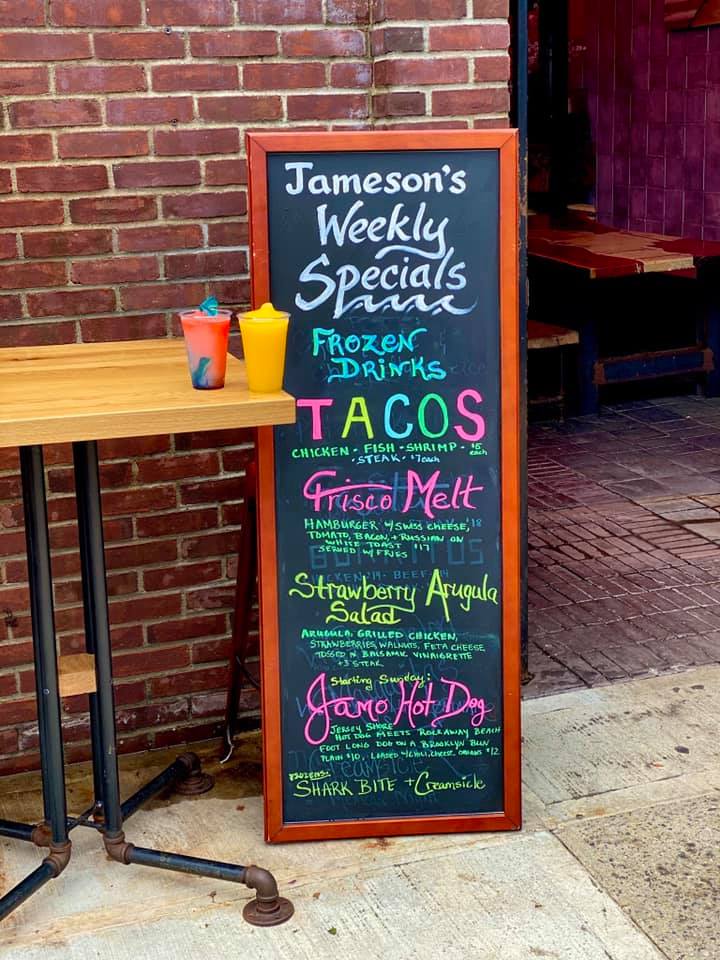 Jameson's
Weekly
Specials
FROZEN
DRINKS
TACOS
CHICKEN - FISH - SHRIMP - $5 each
- STEAK - $7 each
Frisco Melt
HAMBURGER W/ SWISS CHEESE,
TOMATO, BACON, + RUSSIAN ON
WHITE TOAST
SERVED W/ FRIES $17
BURRITOS
Strawberry Arugula
Salad
ARUGULA, GRILLED CHICKEN,
STRAWBERRIES, WALNUTS, FETA CHEESE
TOSSED IN BALSAMIC VINAIGRETTE
+3 STEAK
Starting Sunday:
Jamo Hot Dog
JERSEY SHORE
HOT DOG MEETS ROCKAWAY BEACH
FOOT LONG DOG ON A BROOKLYN BUN
PLAIN $10, LOADED W/CHILI, CHEESE, ONIONS $12
FROZENS:
SHARK BITE + Creamsicle